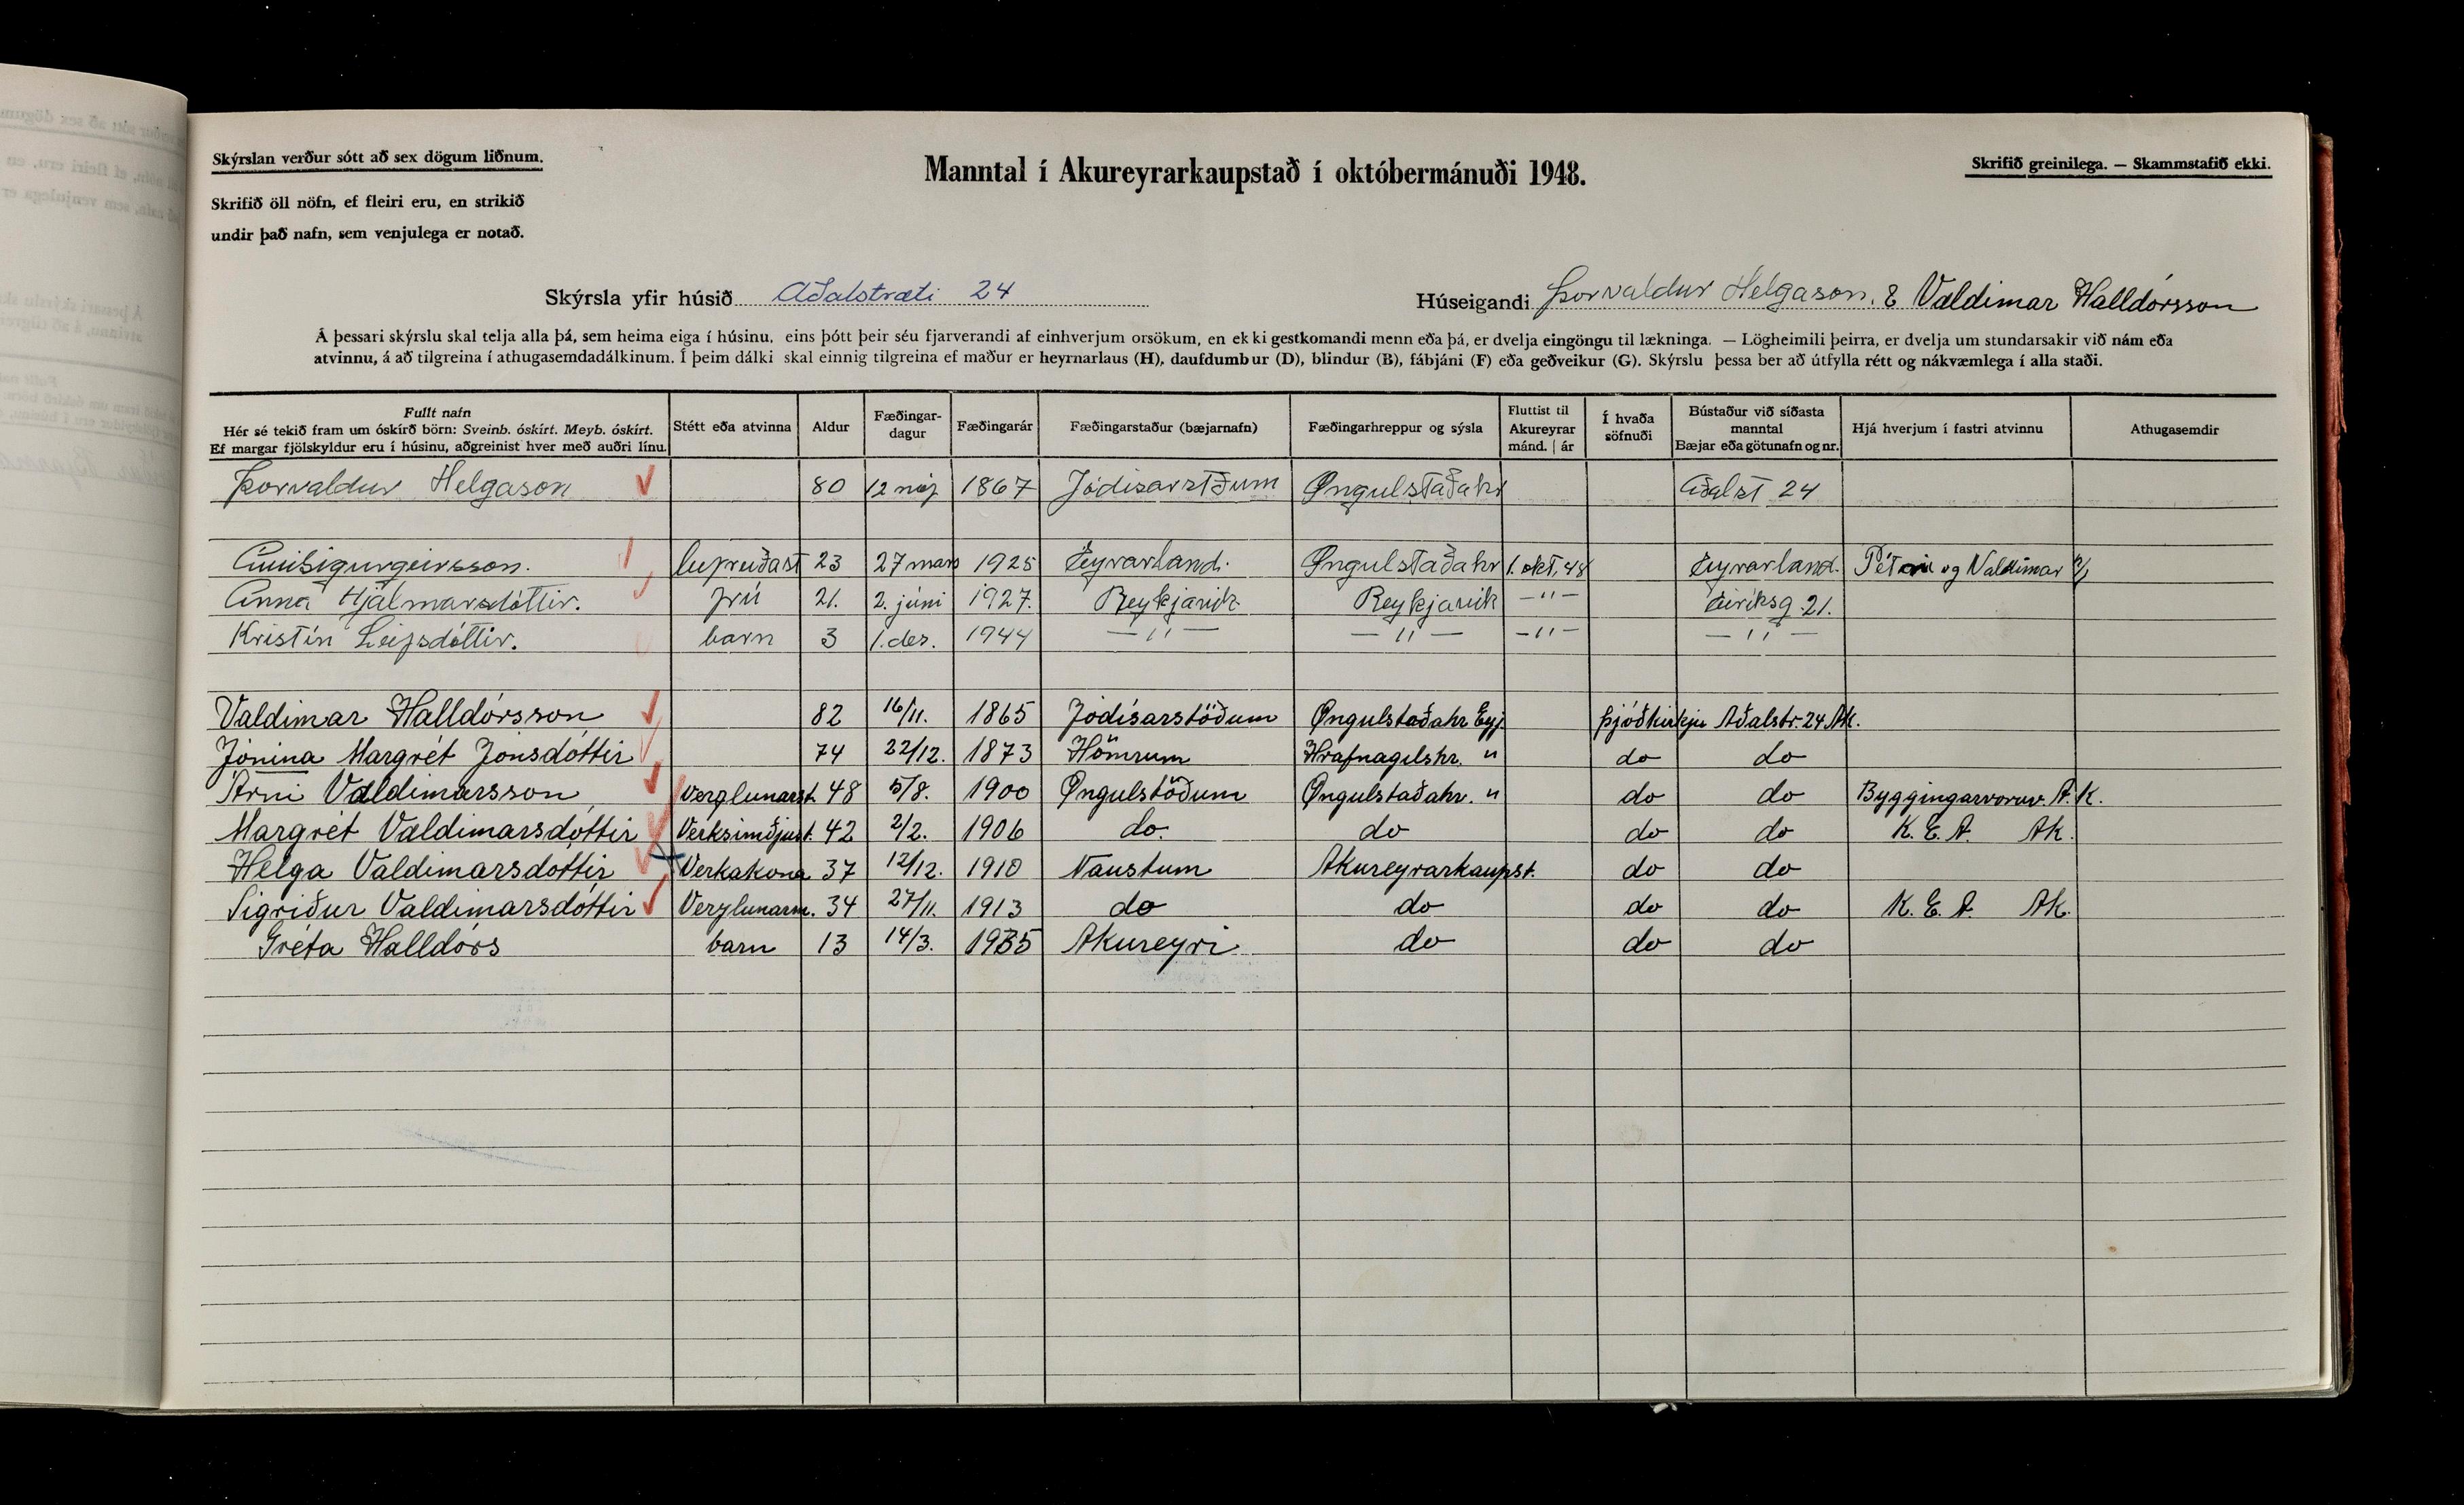 Skýrslan verður sótt að sex dögum liðnum.
Skrifið öll nöfn, ef fleiri eru, en strikið
undir það nafn, sem venjulega er notað.
Manntal í Akureyrarkaupstað í októbermánuði 1948.
Skrifið greinilega. — Skammstafið ekki.
Skýrsla yfir húsið Aðalstræti 24
Húseigandi Þorvaldur Helgason. & Valdimar Halldórsson
Á þessari skýrslu skal telja alla þá, sem heima eiga í húsinu, eins þótt þeir séu fjarverandi af einhverjum orsökum, en ekki gestkomandi menn eða þá, er dvelja eingöngu til lækninga. — Lögheimili þeirra, er dvelja um stundarsakir við nám eða
atvinnu, á að tilgreina í athugasemdadálkinum. Í þeim dálki skal einnig tilgreina ef maður er heyrnarlaus (H), daufdumbur (D), blindur (B), fábjáni (F) eða geðveikur (G). Skýrslu þessa ber að útfylla rétt og nákvæmlega í alla staði.
Fullt nafn
Hér sé tekið fram um óskírð börn: Sveinb. óskírt. Meyb. óskírt.
Ef margar fjölskyldur eru í húsinu, aðgreinist hver með auðri línu.
Stétt eða atvinna
Aldur
Fæðingar-
dagur
Fæðingarár
Fæðingarstaður (bæjarnafn)
Fæðingarhreppur og sýsla
Fluttist til
Akureyrar
mánd. | ár
Í hvaða
söfnuði
Bústaður við síðasta
manntal
Bæjar eða götunafn og nr.
Hjá hverjum í fastri atvinnu
Athugasemdir
Þorvaldur Helgason 80 12 maj 1867 Jódisarstðum Öngulstaðahr Aðalst 24
Sigurgeirsson. 23 27 mars 1925 Eyrarland. Öngulstaðahr 1. okt. 48 Eyrarland. og Valdimar
Anna Hjálmarsdóttir. frú 21. 2. júni 1927. Reykjavik Reykjavik —"— Eiríksg. 21.
Kristín Leifsdóttir. barn 3 1. des. 1944 —"— —"— —"— —"—
Valdimar Halldórsson 82 16/11. 1865 Jódísarstöðum Öngulstaðahr Eyj. Þjóðkirkju Aðalstr. 24 Ak.
Jónína Margrét Jónsdóttir 74 22/12. 1873 Hömrum Hrafnagilshr. " do do
Árni Valdimarsson Verzlunarst. 48 5/8. 1900 Öngulstöðum Öngulstaðahr. " do do Byggingarvöruv. A. K.
Margrét Valdimarsdóttir Verksmðjust. 42 2/2. 1906 do. do do do K. E. A. Ak.
Helga Valdimarsdóttir Verkakona 37 12/12. 1910 Naustum Akureyrarkaupst. do do
Sigríður Valdimarsdóttir Verzlunarm. 34 27/11. 1913 do do do do K. E. A. Ak.
Gréta Halldórs barn 13 14/3. 1935 Akureyri do do do